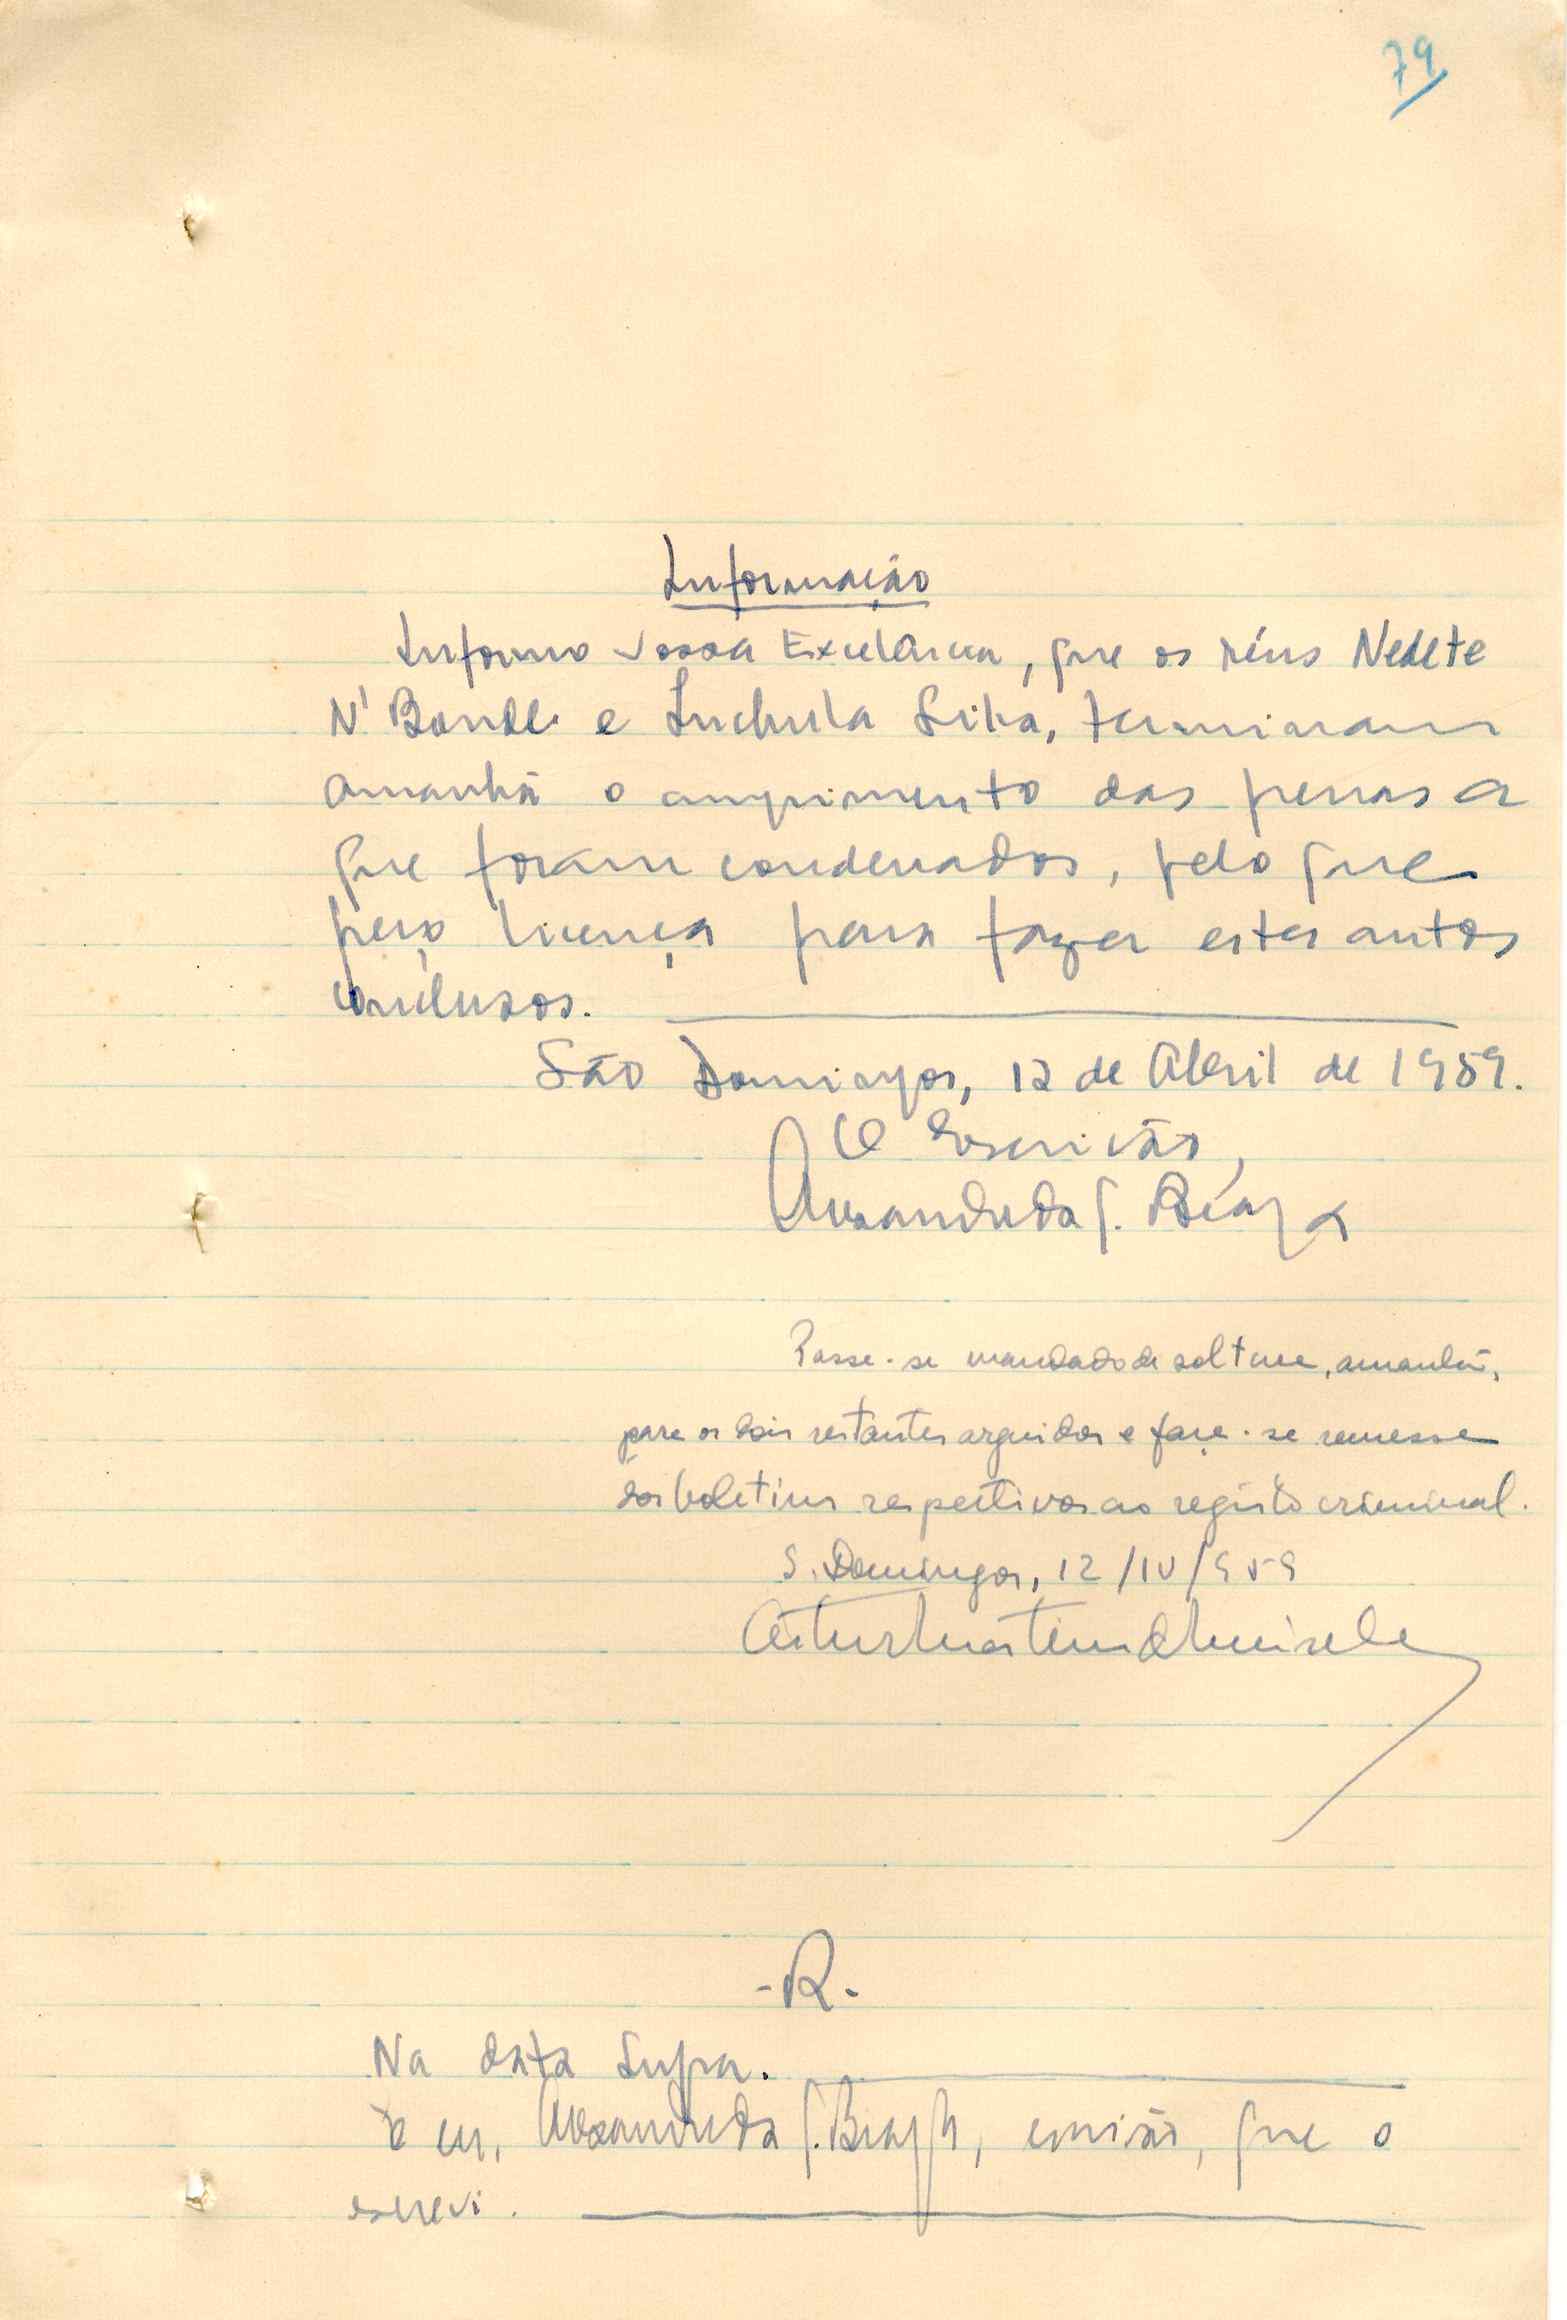 79
Informação
Informo Vossa Excelência, que os réus Nedete
N'Bande e Luchula Silva, terminam
amanhã o cumprimento das penas a
que foram condenados, pelo que
peço licença para fazer estes autos
conclusos.
São Domingos, 12 de Abril de 1959.
O Escrivão,
Alexandre da S. Braga
Passe-se mandado de soltura, amanhã,
para os dois restantes arguidos e faça-se remessa
dos boletins respectivos ao registo criminal.
S. Domingos, 12/IV/959
Artur Martins de Meireles
-R.
Na data supra.
E eu, Alexandre da S. Braga, escrivão, que o
escrevi.